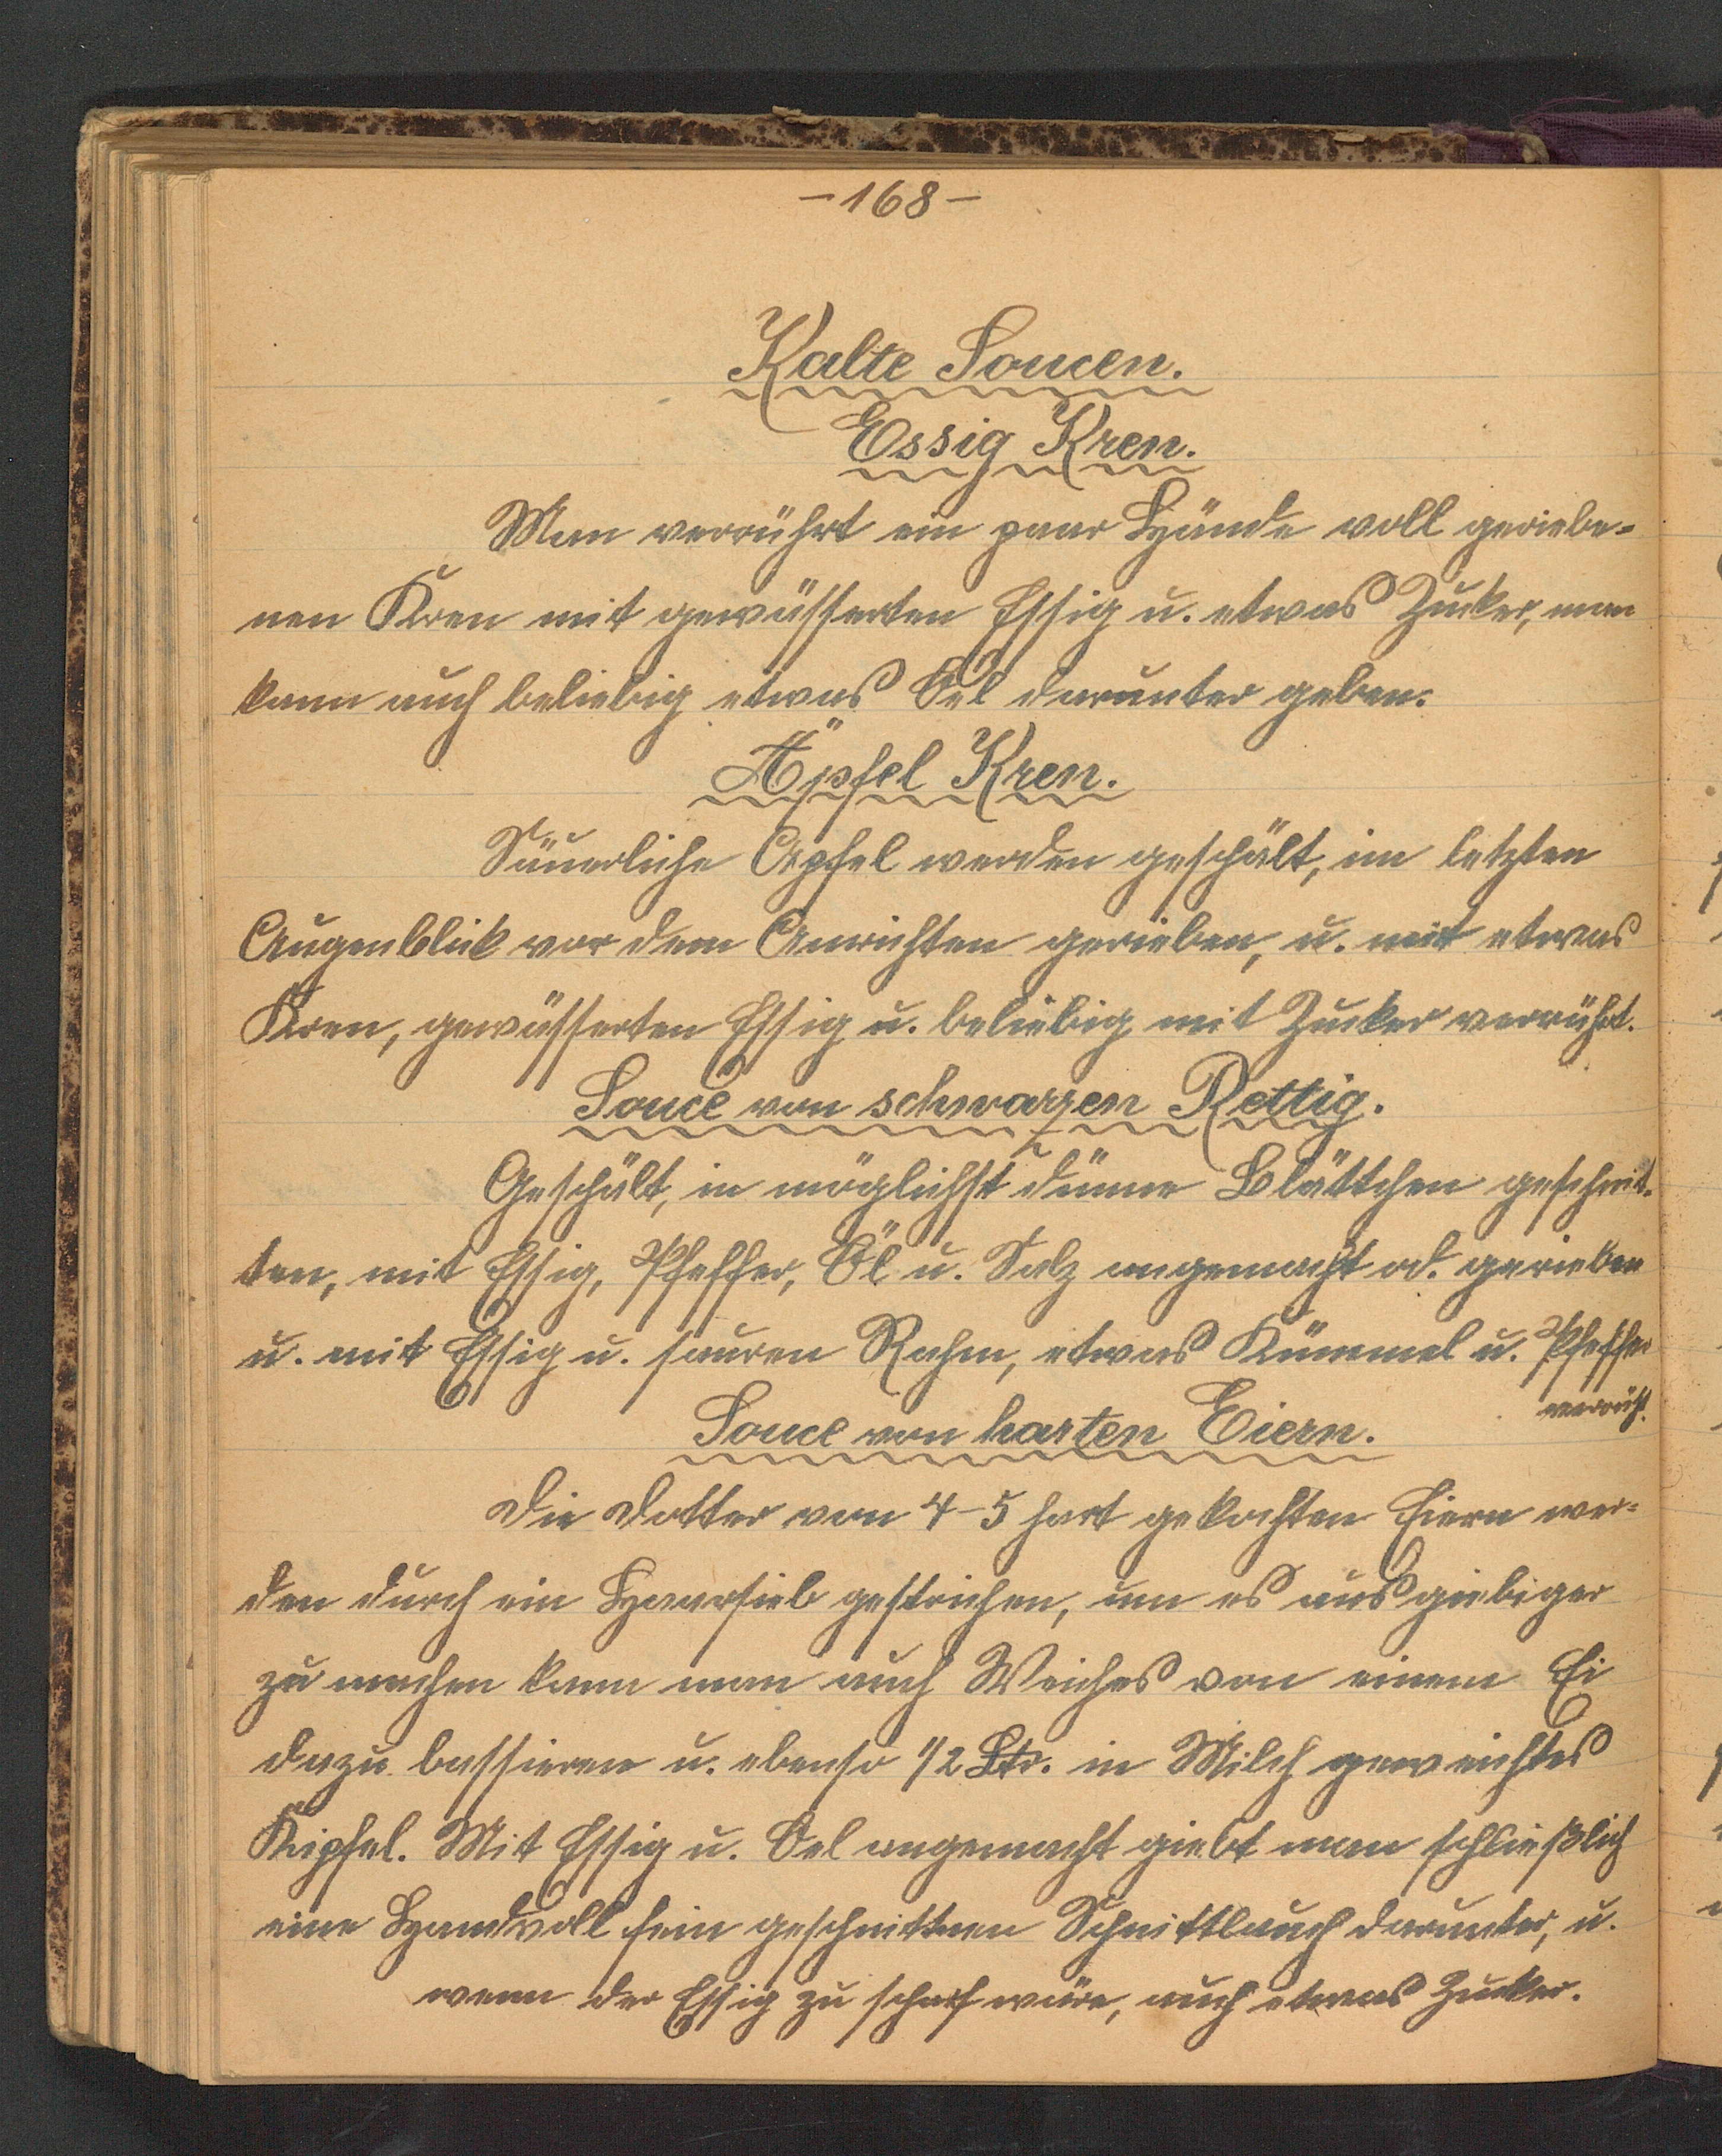 -168-
Kalte Soucen.
Essig Kren.
Man verrührt ein paar Hände voll geriebe=
nen Kren mit gewässerten Essig u. etwas Zucker, man
kann auch beliebig etwas Öel darunter geben.
Äpfel Kren.
Säuerliche Apfel werden geschält, im letzten
Augenblick vor dem Anrichten gerieben, u. mit etwas
Kren, gewässerten Essig u. beliebig mit Zucker verrührt.
Souce von schwarzen Rettig.
Geschält, in möglichst dünne Blättchen geschnit-
ten, mit Essig, Pfeffer, Öl u. Salz angemacht od. gerieben
u. mit Essig u. sauren Rahm, etwas Kümmel u. Pfeffer
verrührt.
Souce von harten Eiern.
Die Dotter von 4-5 hart gekochten Eiern wer=
den durch ein Haarsieb gestrichen, um es ausgiebiger
zu machen kann man auch Weiches von einem Ei
dazu bassieren u. ebenso 1/2 in Milch geweichtes
Kipfel. Mit Essig u. Oel angemacht giebt man schließlich
eine Handvoll fein geschnittnen Schnittlauch darunter, u.
wenn der Essig zu scharf wäre, auch etwas Zucker.